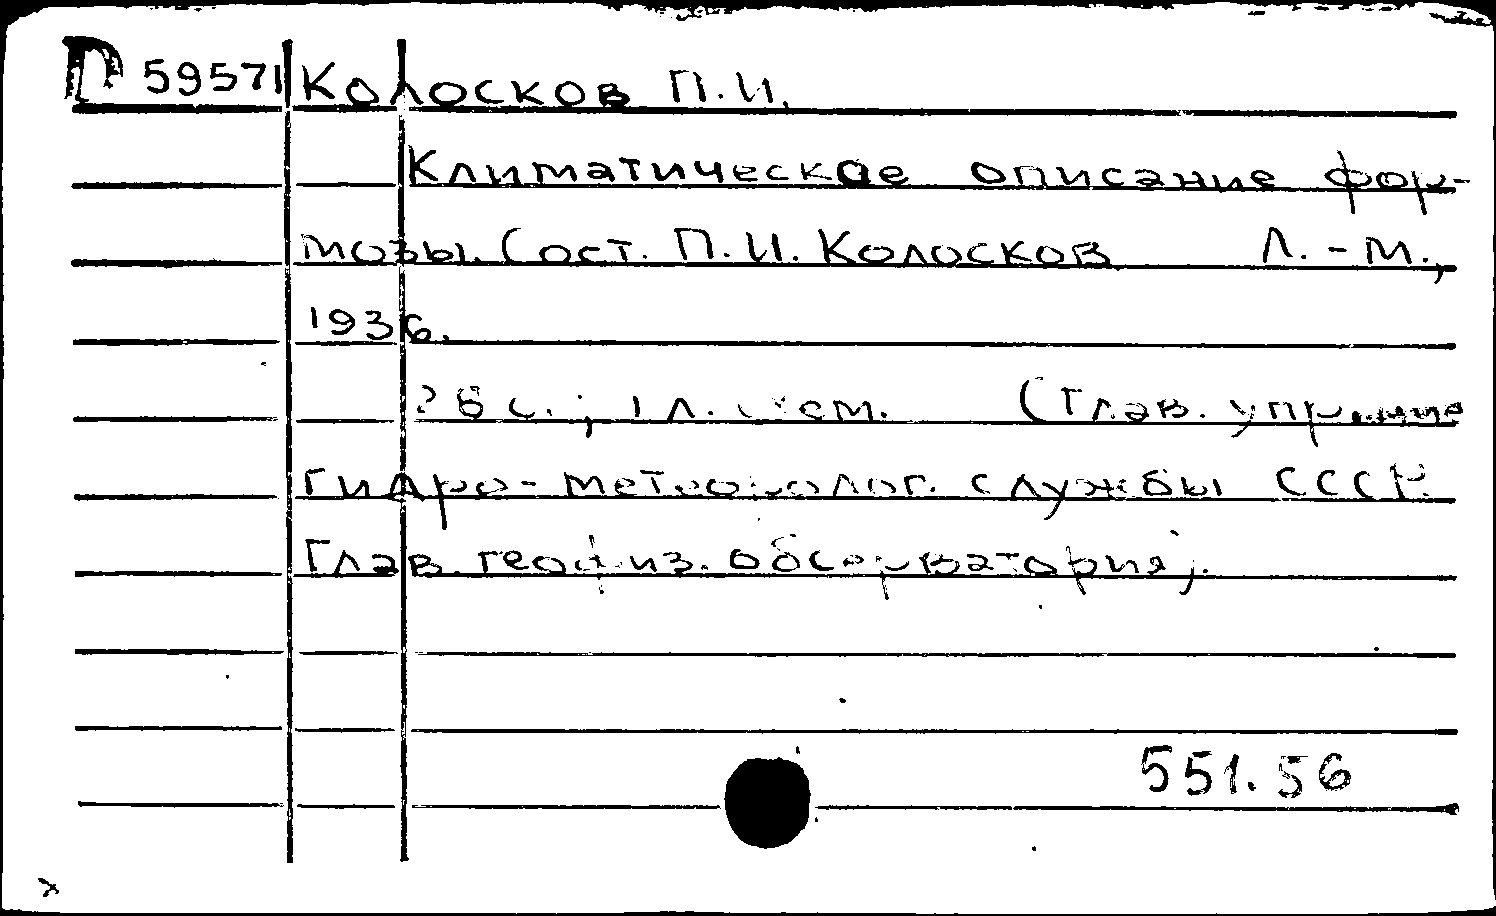 П 59571 Колосков П.И.
Климатическое описание фор-
мозы. Сост. П.И. Колосков Л.-М.,
1936.
26 с.; 1 л. схем. (Глав. управление
гидро-метеоролог. службы СССР.
Глав. геофиз. обсерватория).
551.56